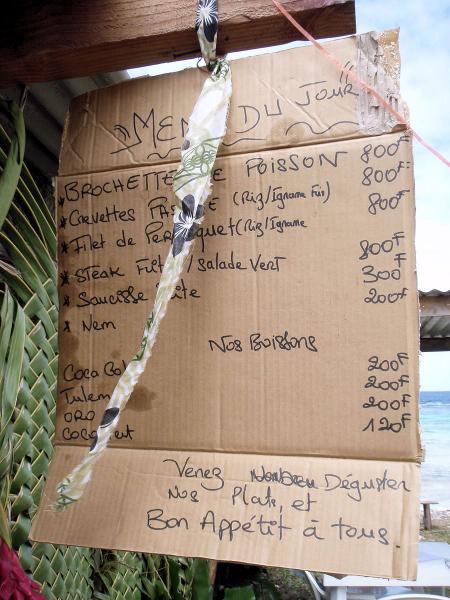 "Menu Du Jour"
* BROCHETTE DE POISSON 800F
* Crevettes (Riz/Igname Fui) 800F
* Filet de Perroquet (Riz/Igname 800F
* Steak Frite / Salade Vert 800F
* Saucisse Frite 300F
* Nem 200F
Nos Boissons
Coca Cola 200F
Tulem 200F
ORO 200F
Coco vert 120F
Venez Nombreux Déguster
Nos Plats et
Bon Appétit à tous.